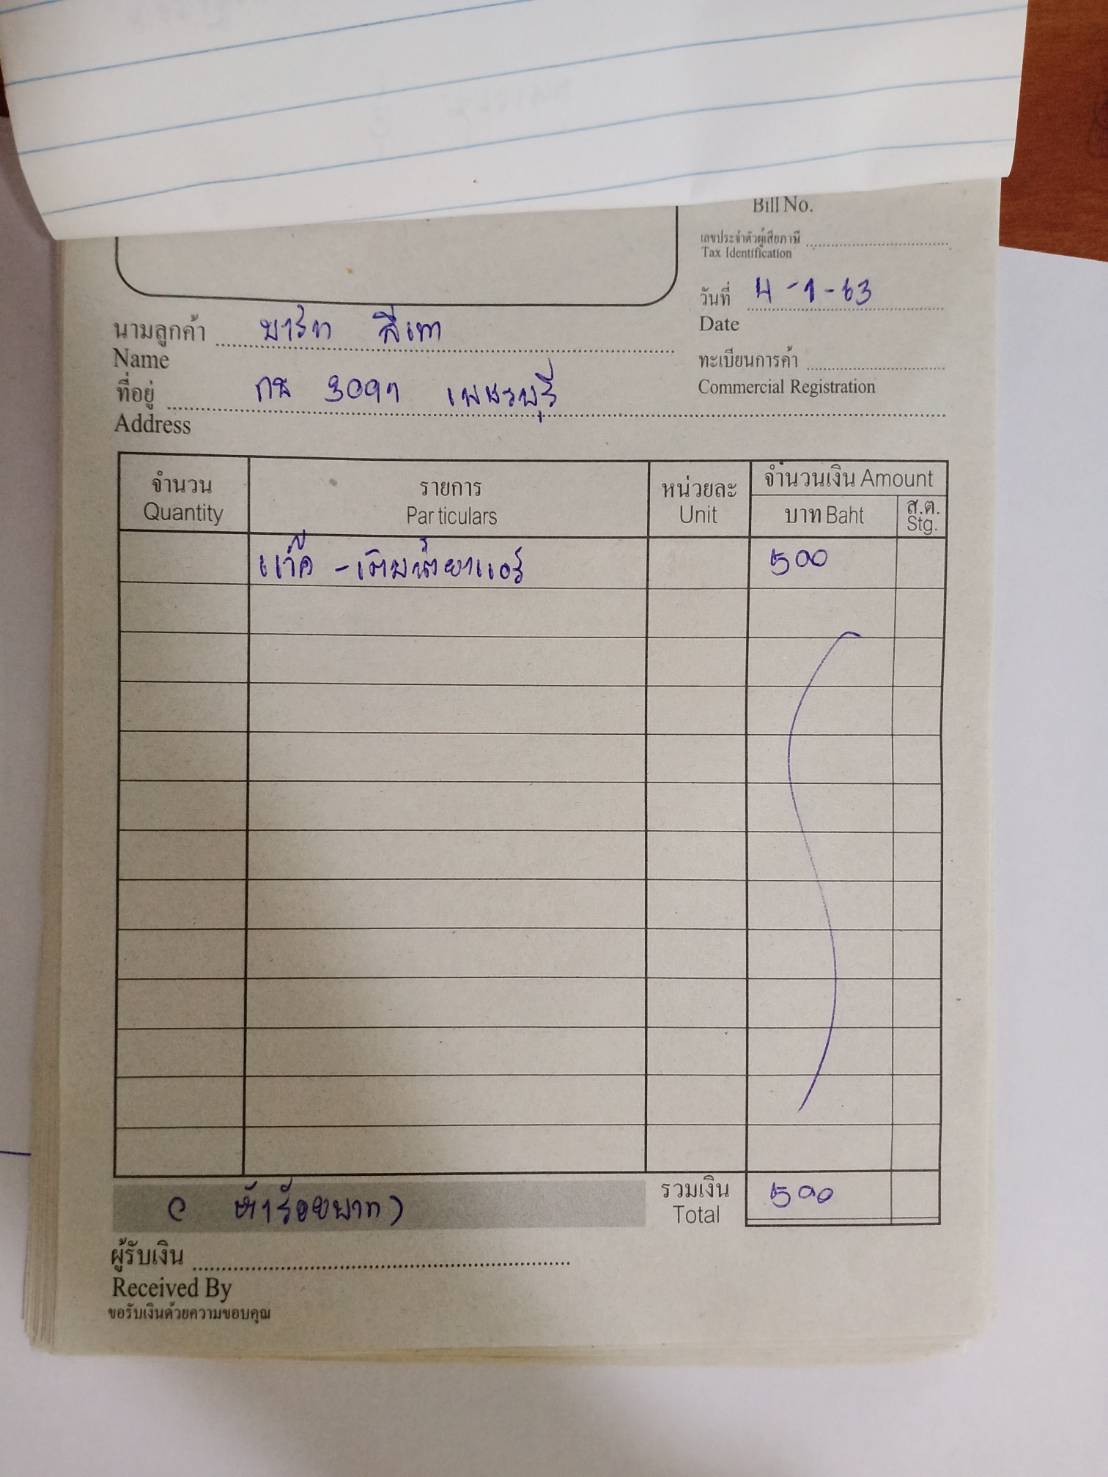 Bill No.
เลขประจำตัวผู้เสียภาษี
Tax Identification
วันที่ 4-1-63
Date
นามลูกค้า มาร์ท สีเทา
Name
ทะเบียนการค้า
Commercial Registration
ที่อยู่ กษ 3097 เพชรบุรี
Address
จำนวน รายการ หน่วยละ จำนวนเงิน Amount
Quantity Particulars Unit บาท Baht ส.ต. Stg.
-เติมน้ำยาแอร์ 500
รวมเงิน 500
Total
( ห้าร้อยบาท )
ผู้รับเงิน
Received By
ขอรับเงินด้วยความขอบคุณ